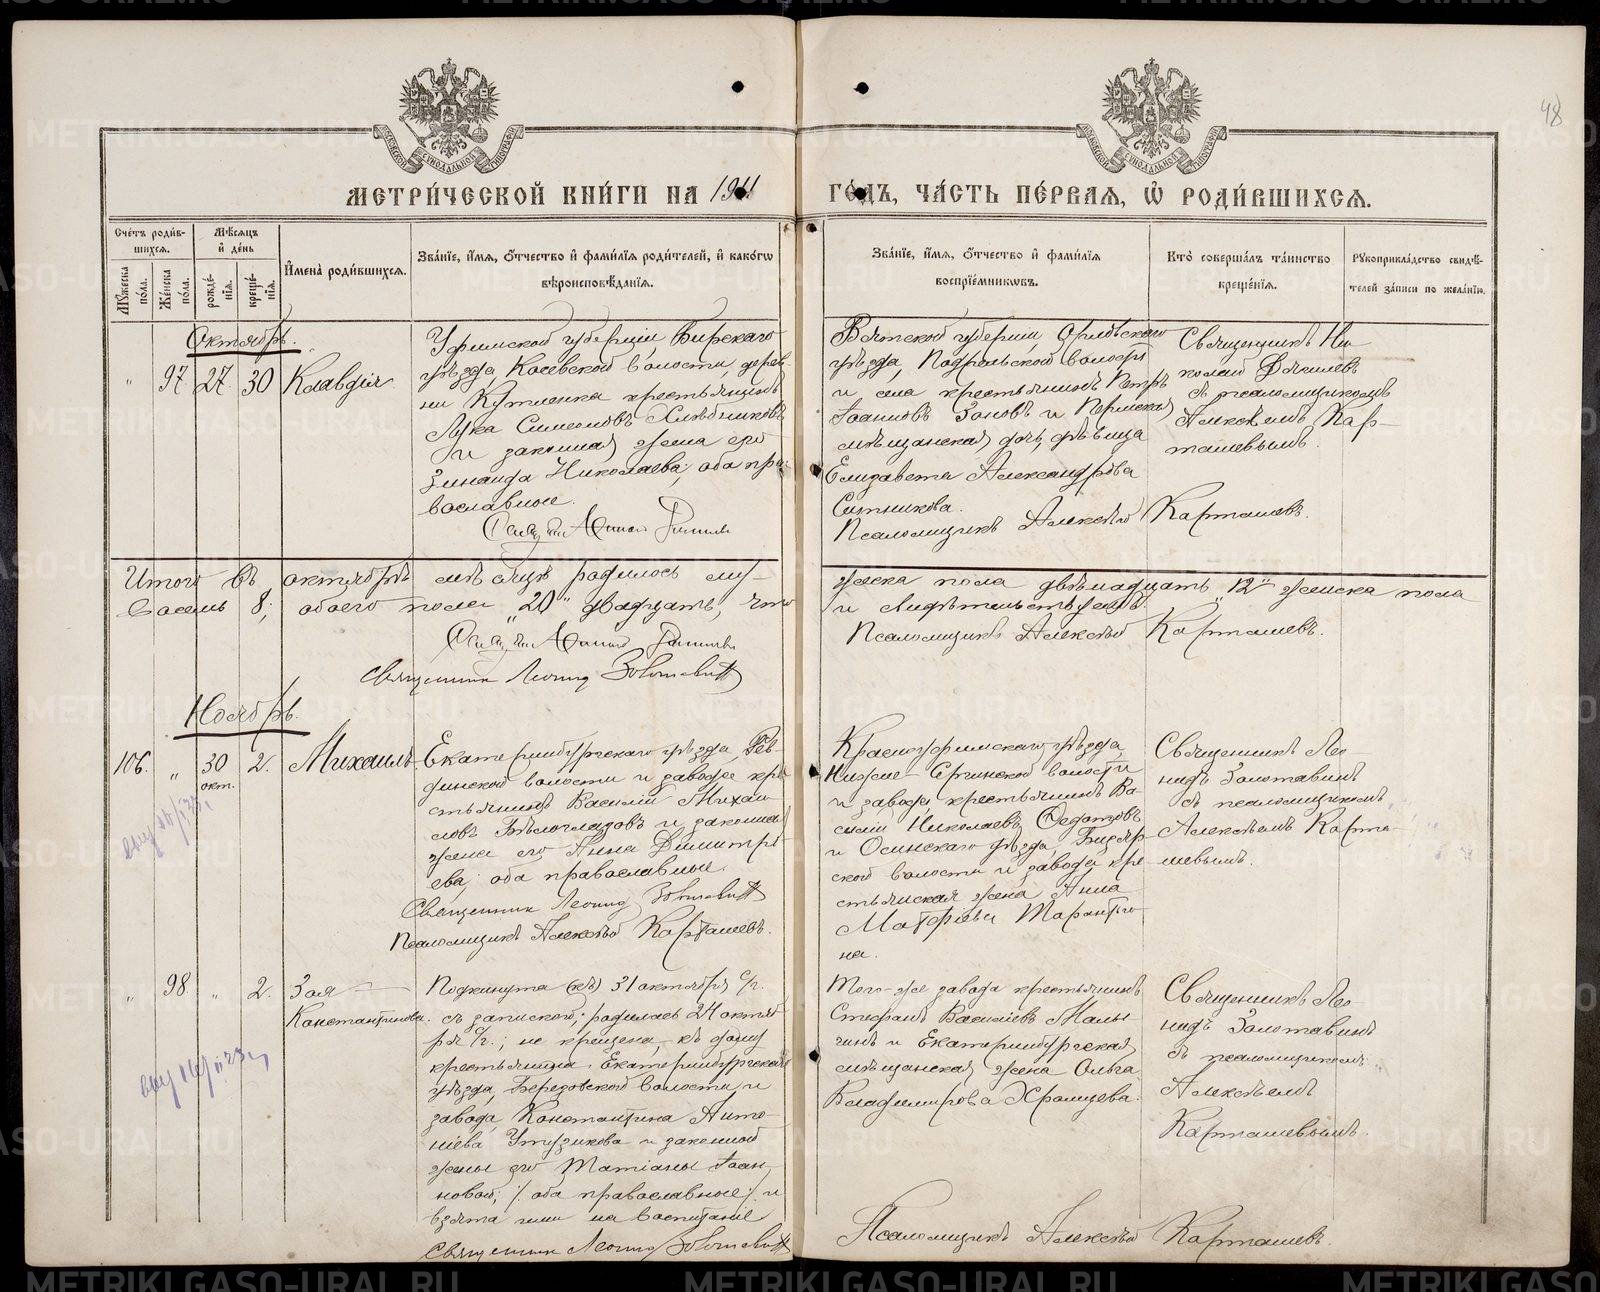 48
МОСКОВСКОЙ СѴНОДАЛЬНОЙ ТИПОГРАФІИ
МОСКОВСКОЙ СѴНОДАЛЬНОЙ ТИПОГРАФІИ
МЕТРИ́ЧЕСКОЙ КНИ́ГИ НА 1911
ГО́ДЪ, ЧА́СТЬ ПЕ́РВАЯ, Ѡ҆ РОДИ́ВШИХСЯ.
Сче́тъ роди́в-
шихся.
Му́жеска по́ла.
Же́нска по́ла.
Мѣ́сяцъ
и҆ де́нь
рожде́-
нїя.
креще́-
нїя.
И҆мена̀ роди́вшихся.
Зва́нїе, и҆́мя, о҆́тчество и҆ фами́лїя роди́телей, и҆ како́гѡ
вѣроисповѣ́данїя.
Зва́нїе, и҆́мя, о҆́тчество и҆ фами́лїя
воспрїе́мникѡвъ.
Кто̀ соверша́лъ та́инство
креще́нїя.
Рукоприкла́дство свидѣ́-
телей за́писи по жела́нїю.
Октябрь.
„ 97 27 30 Клавдія
Уфимской губерніи, Бирскаго
уѣзда, Касевской волости, дерев-
ни Кутлинка крестьянинъ
Лука Симеоновъ Хлѣбниковъ
и законная жена его
Зинаида Николаева, оба пра-
вославные.
Вятской губерніи, Орловскаго
уѣзда, Подрельской волости
и села крестьянинъ Петръ
Іоанновъ Зоновъ и Пермская
мѣщанская дочь, дѣвица
Елизавета Александрова
Ситникова.
Псаломщикъ Алексѣй Карташевъ.
Священникъ Ни-
колай
съ псаломщикомъ
Алексѣемъ Кар-
ташевымъ.
Итого въ октябрѣ мѣсяцѣ родилось му-
жеска пола двѣнадцать „12“ женска пола
восемь 8; обоего пола „20“ двадцать, что
и свидѣтельствуемъ.
Псаломщикъ Алексѣй Карташевъ.
Священникъ Леонид Золотавинъ
Ноябрь.
106. „ 30 окт. 2. Михаилъ
Екатеринбургскаго уѣзда, Рев-
динской волости и завода кре-
стьянинъ Василій Михаи-
ловъ Бѣлоглазовъ и законная
жена его Анна Димитрі-
ева; оба православные.
Священник Леонид Золотавинъ
Псаломщикъ Алексѣй Карташевъ.
Красноуфимскаго уѣзда,
Нижне-Сергинской волости
и завода крестьянинъ Ва-
силій Николаевъ Федотовъ
и Осинскаго уѣзда, Бизяр-
ской волости и завода, кре-
стьянская жена Анна
на.
Священникъ Лео-
нидъ Золотавинъ
съ псаломщикомъ
Алексѣемъ Карта-
шевымъ.
„ 98. „ 2. Зоя
Константинова.
Подкинута 31 октября с/г.
съ запиской; родилась 24 октяб-
ря с/г.; не крещена, къ дому
крестьянина Екатеринбургскаго
уѣзда, Березовскаго волости и
завода, Константина Анто-
ніева Утузикова и законной
жены его Татіаны Іоан-
новой; /. оба православные /. и
взята ими на воспитаніе
Священник Леонид Золотавинъ
Того-же завода крестьянинъ
Стефанъ Василіевъ Малы-
гинъ и Екатеринбургская
мѣщанская жена Ольга
Владимирова Храмцева.
Священникъ Лео-
нидъ Золотавинъ
съ псаломщикомъ
Алексѣемъ
Карташевымъ.
Псаломщикъ Алексѣй Карташевъ.
METRIKI.GASO-URAL.RU